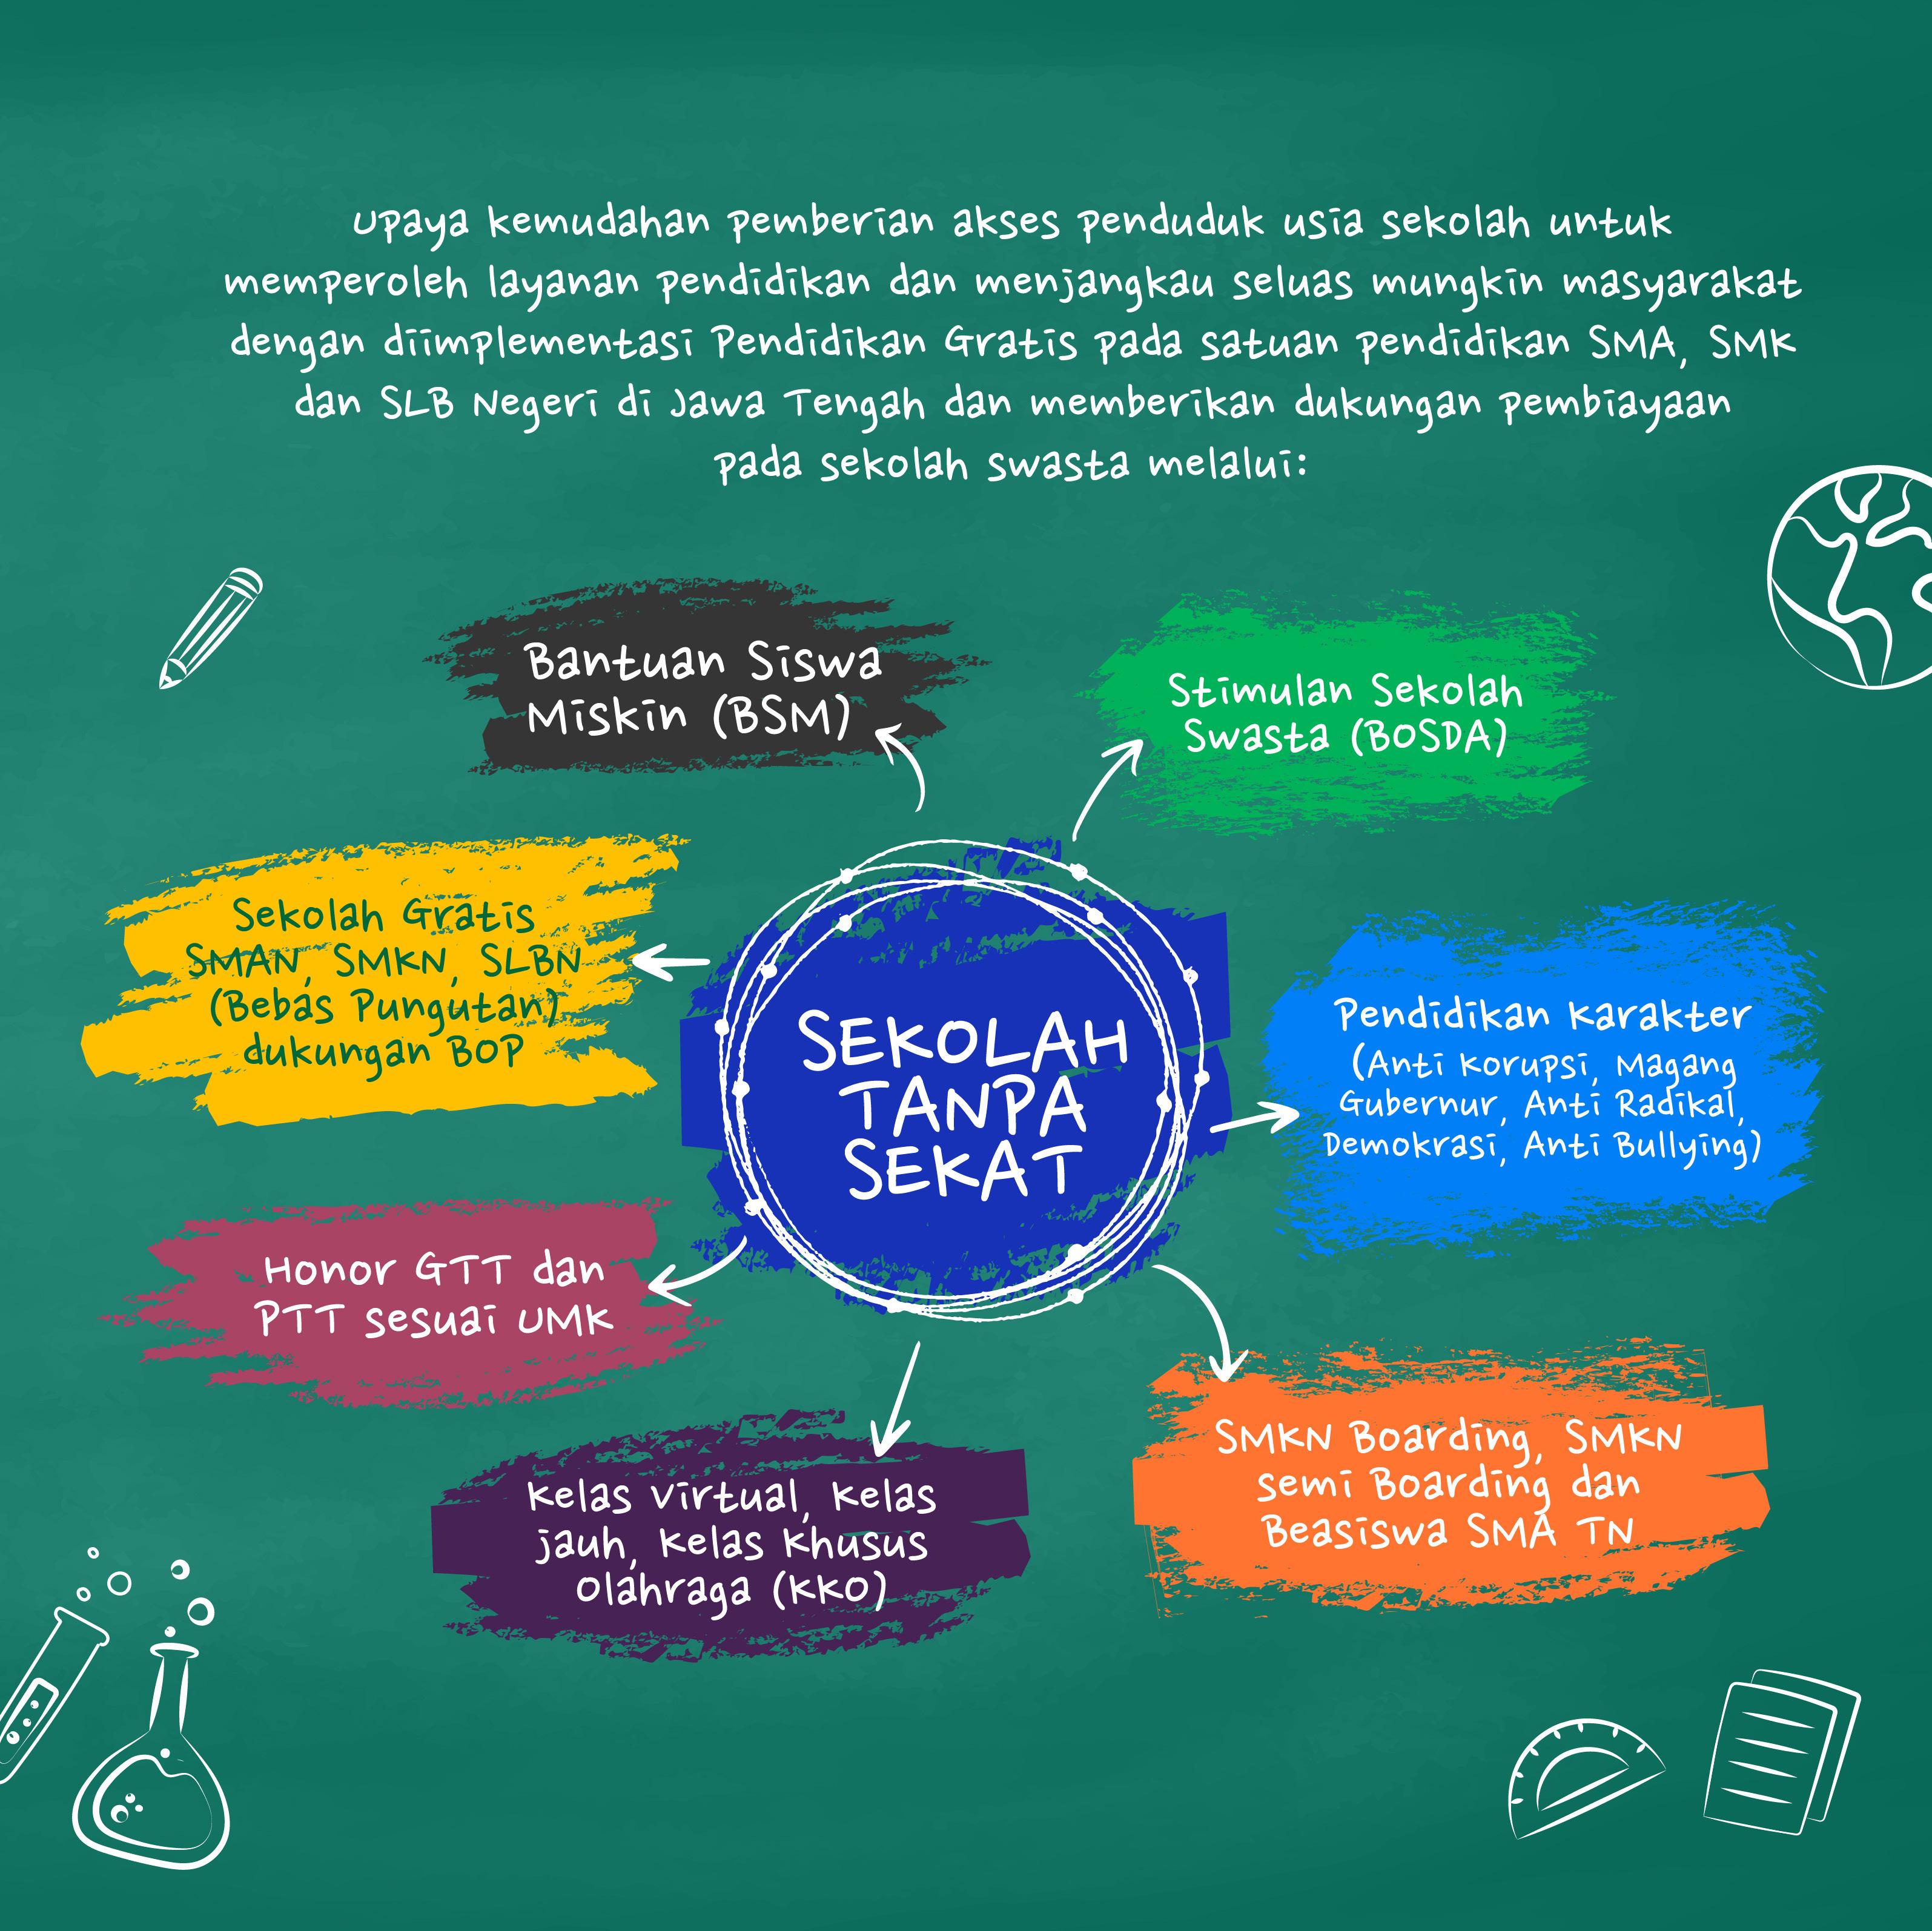 Upaya kemudahan pemberian akses penduduk usia sekolah untuk
memperoleh layanan pendidikan dan menjangkau seluas mungkin masyarakat
dengan diimplementasi Pendidikan Gratis pada satuan pendidikan SMA, SMK
dan SLB Negeri di Jawa Tengah dan memberikan dukungan pembiayaan
pada sekolah swasta melalui:
Bantuan Siswa
Miskin (BSM)
Stimulan Sekolah
Swasta (BOSDA)
Sekolah Gratis
SMAN, SMKN, SLBN
(Bebas Pungutan)
dukungan BOP
SEKOLAH
TANPA
SEKAT
Pendidikan Karakter
(Anti Korupsi, Magang
Gubernur, Anti Radikal,
Demokrasi, Anti Bullying)
Honor GTT dan
PTT sesuai UMK
Kelas Virtual, Kelas
jauh, Kelas Khusus
Olahraga (KKO)
SMKN Boarding, SMKN
semi Boarding dan
Beasiswa SMA TN